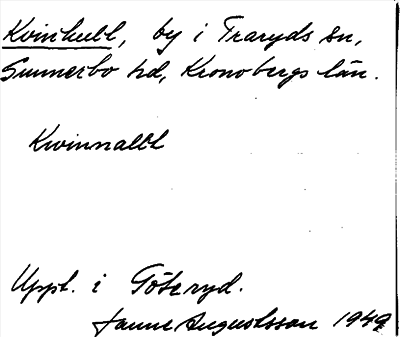 Kvinhult, by i Traryds sn,
Sunnerbo hd, Kronobergs län.
Kvinnallt
Uppt. i Göteryd.
Janne Augustsson 1949